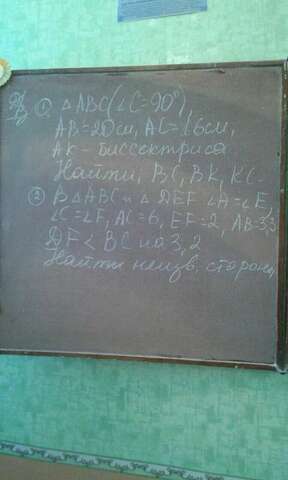 Д/З ① △ABC (∠C=90°),
AB=20см, AC=16см,
AK - биссектриса
Найти, BC, BK, KC-
② В △ABC и △DEF ∠A=∠E,
∠C=∠F, AC=6, EF=2, AB=3,3
DF < BC на 3,2
Найти неизв. стороны